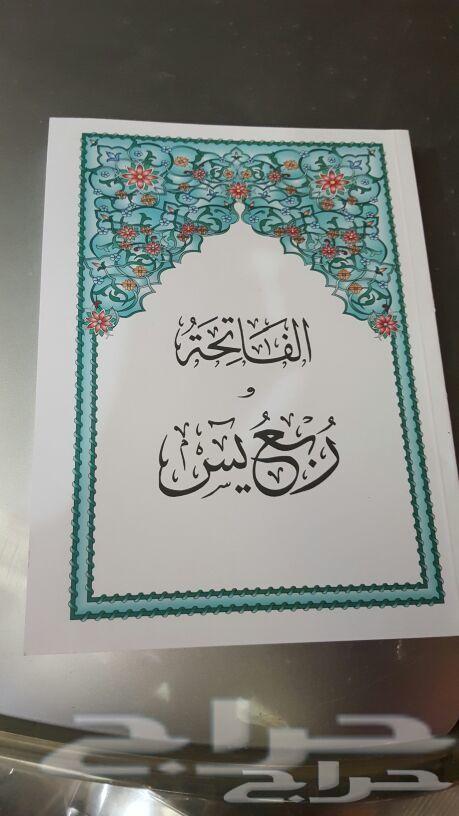 الفَاتِحَةُ
و
رُبعُ يسٓ
حراج
حراج